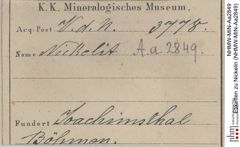 K. K. Mineralogisches Museum.
Acq.-Post V. d. N. 3778.
Name Nickelit A.a 2849.
Fundort Joachimsthal
Böhmen.
NHMW-MIN-Aa2849
Etiketten zu Nickelin (NHMW-MIN-Aa2849)
nhm